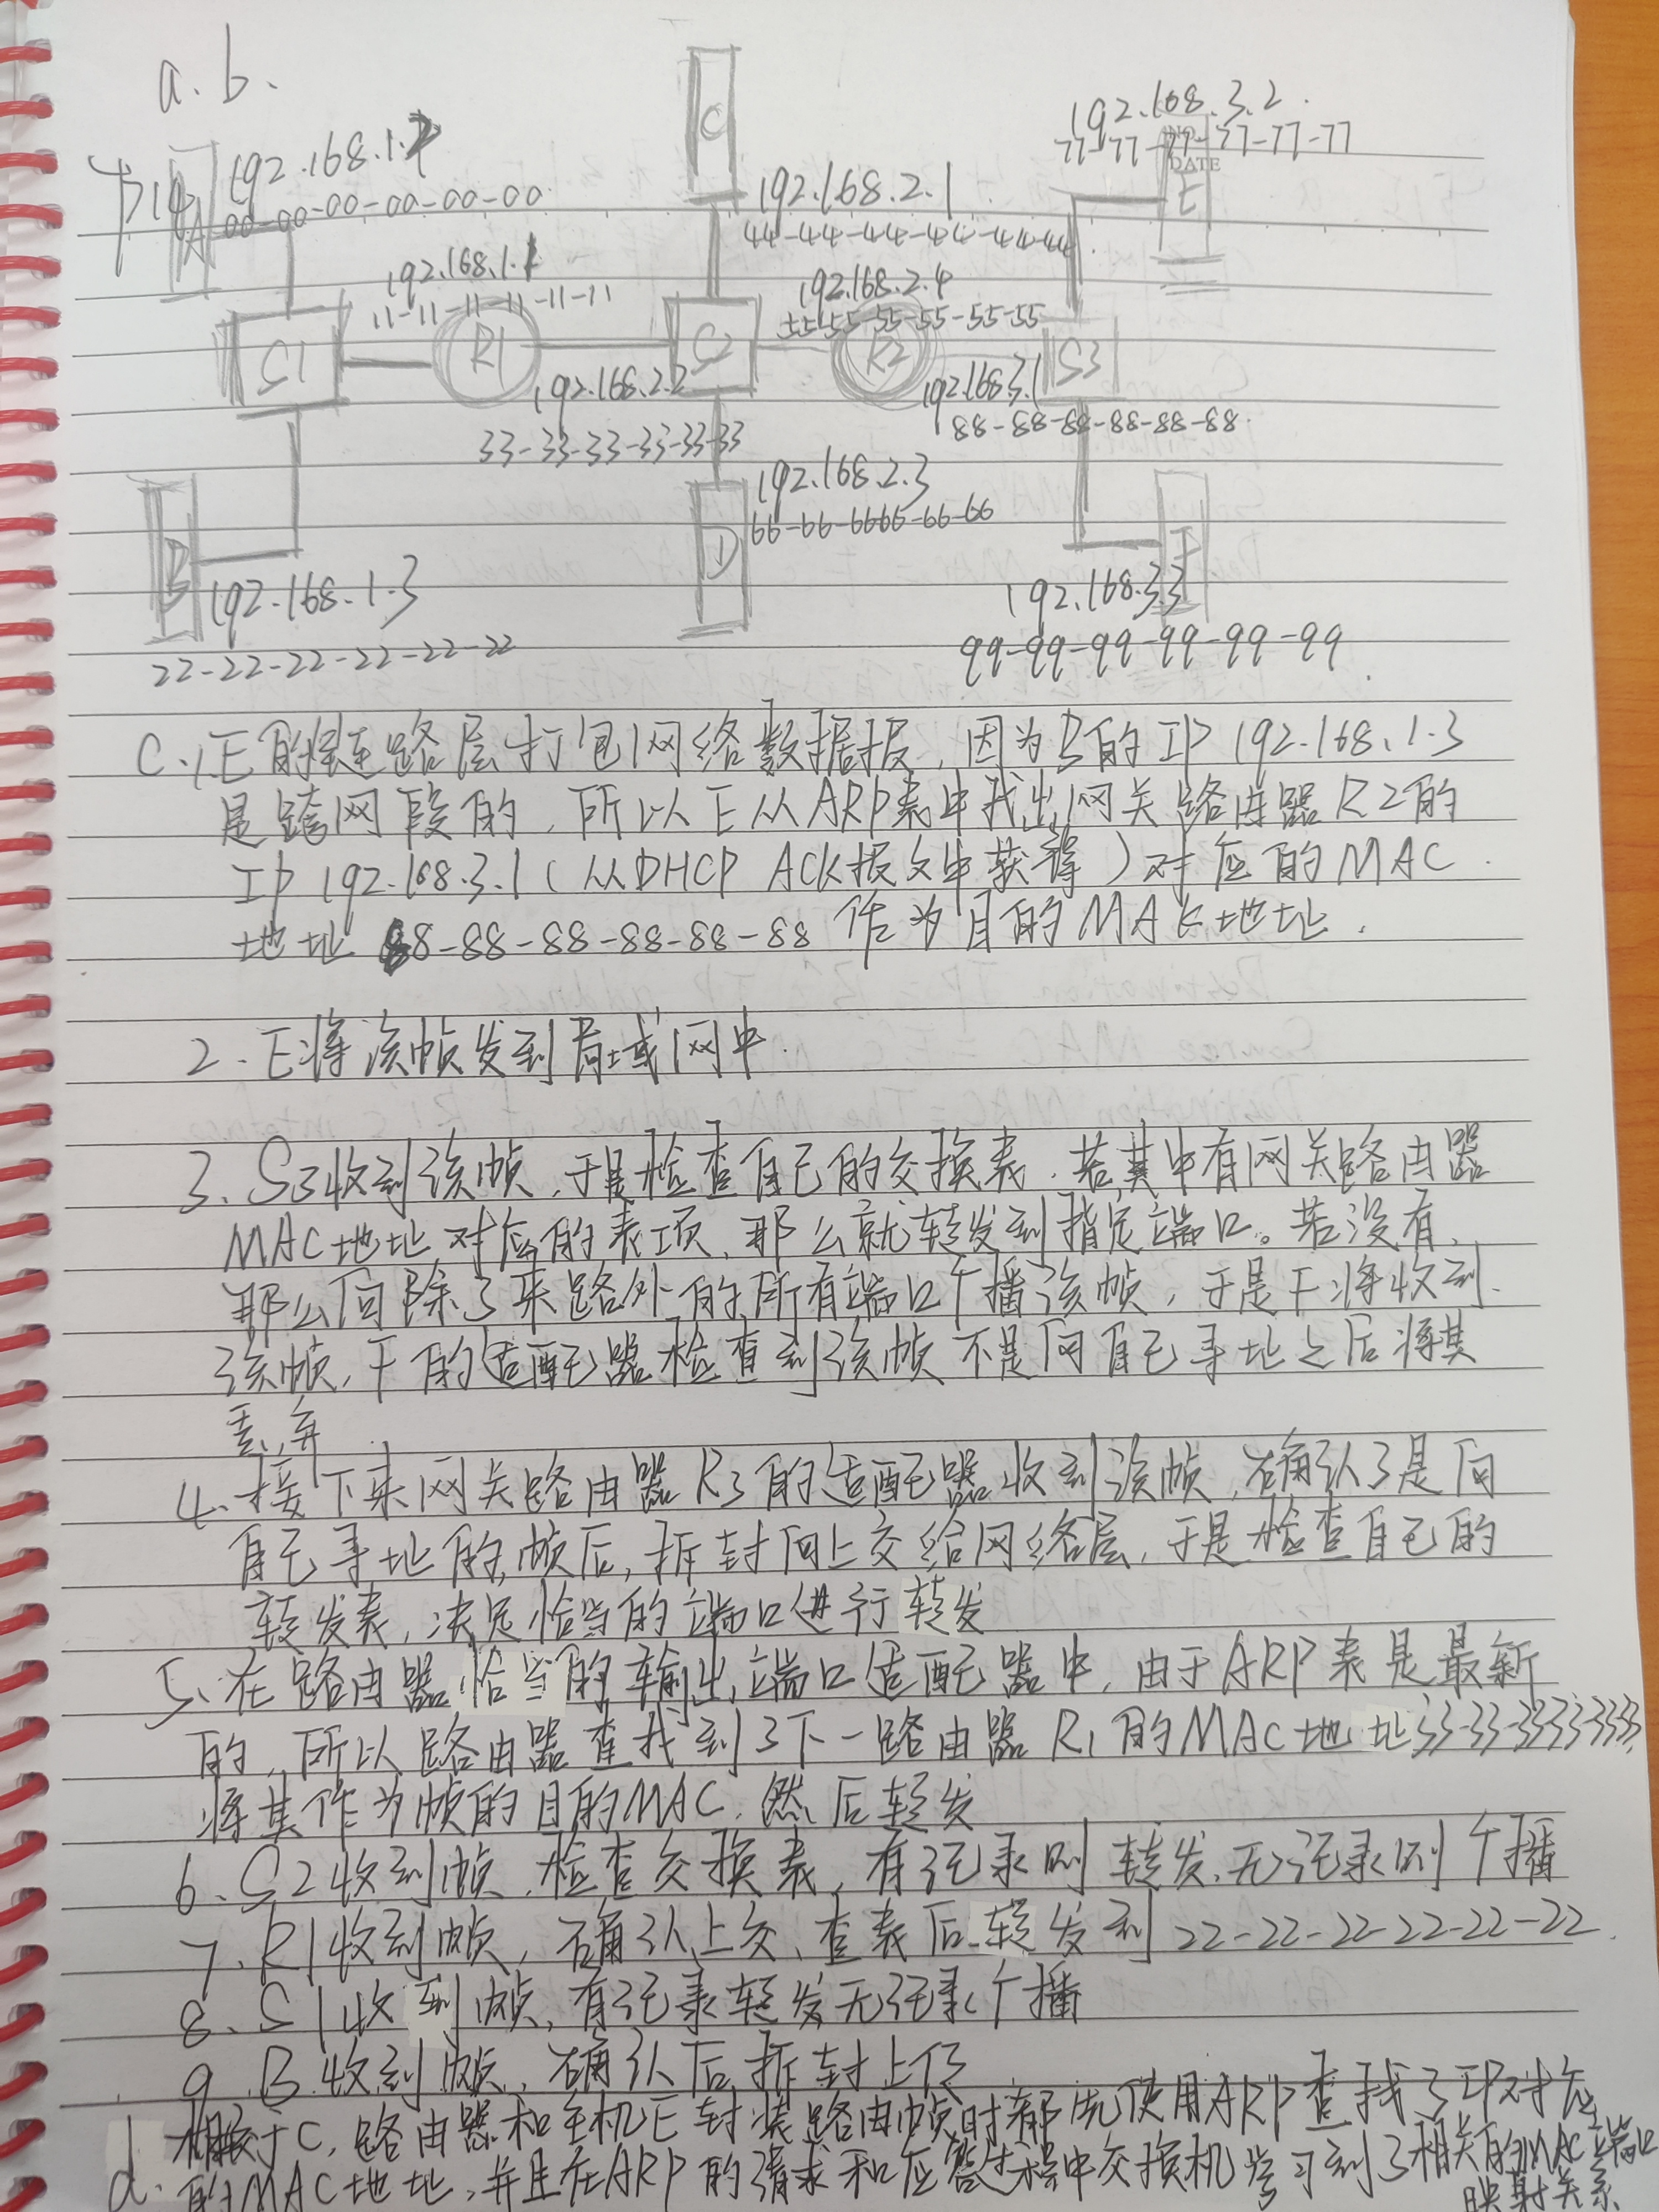 a. b.
P14
A
192.168.1.2
00-00-00-00-00-00
C
192.168.2.1
44-44-44-44-44-44
192.168.3.2
77-77-77-77-77-77
NO.
DATE
E
192.168.1.1
11-11-11-11-11-11
192.168.2.4
55-55-55-55-55-55
S1
R1
S2
R2
S3
192.168.2.2
33-33-33-33-33-33
192.168.3.1
88-88-88-88-88-88
B
192.168.1.3
22-22-22-22-22-22
D
192.168.2.3
66-66-6666-66-66
F
192.168.3.3
99-99-99-99-99-99
C. 1. E的链路层打包网络数据报,因为B的IP 192.168.1.3
是跨网段的,所以E从ARP表中找出网关路由器R2的
IP 192.168.3.1(从DHCP ACK报文中获得)对应的MAC
地址 88-88-88-88-88-88 作为目的MAC地址.
2. E将该帧发到局域网中.
3. S3收到该帧,于是检查自己的交换表.若其中有网关路由器
MAC地址对应的表项,那么就转发到指定端口。若没有,
那么向除了来路外的所有端口广播该帧,于是F将收到
该帧,F的适配器检查到该帧不是向自己寻址之后将其
丢弃.
4. 接下来网关路由器R3的适配器收到该帧,确认了是向
自己寻址的帧后,拆封向上交给网络层,于是检查自己的
转发表,决定恰当的端口进行转发
5. 在路由器恰当的输出端口适配器中,由于ARP表是最新
的,所以路由器查找到了下一路由器R1的MAC地址33-33-3333-3333,
将其作为帧的目的MAC.然后转发
6. S2收到帧.检查交换表,有记录则转发,无记录则广播
7. R1收到帧,确认上交,查表后转发到22-22-22-22-22-22.
8. S1收到帧,有记录转发无记录广播
9. B收到帧,确认后拆封上传
d. 相较于C,路由器和主机E封装路由帧时都先使用ARP查找了IP对应
的MAC地址,并且在ARP的请求和应答过程中交换机学习到了相关的MAC端口
映射关系